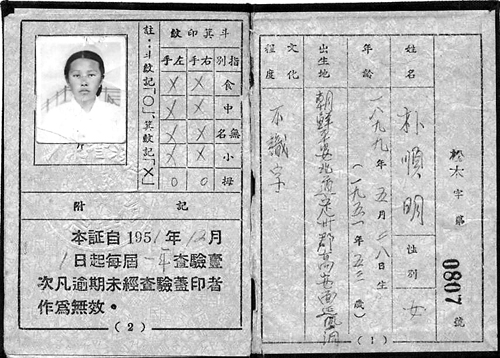 字第 0807 號
姓名 朴順明 性別 女
年齡 一八九九年五月二八日生
(一九五一年五三歲)
出生地 朝鮮平安北道定州郡高安面
文化程度 不識字
(1)
斗箕印紋
指別 右手 左手
食 X X
中 X X
無名 X X
小 X X
拇 O O
註:斗紋記「O」,箕紋記「X」
附記
本証自1951年12月
1日起每屆一年查驗壹
次凡逾期未經查驗蓋印者
作為無效。
(2)